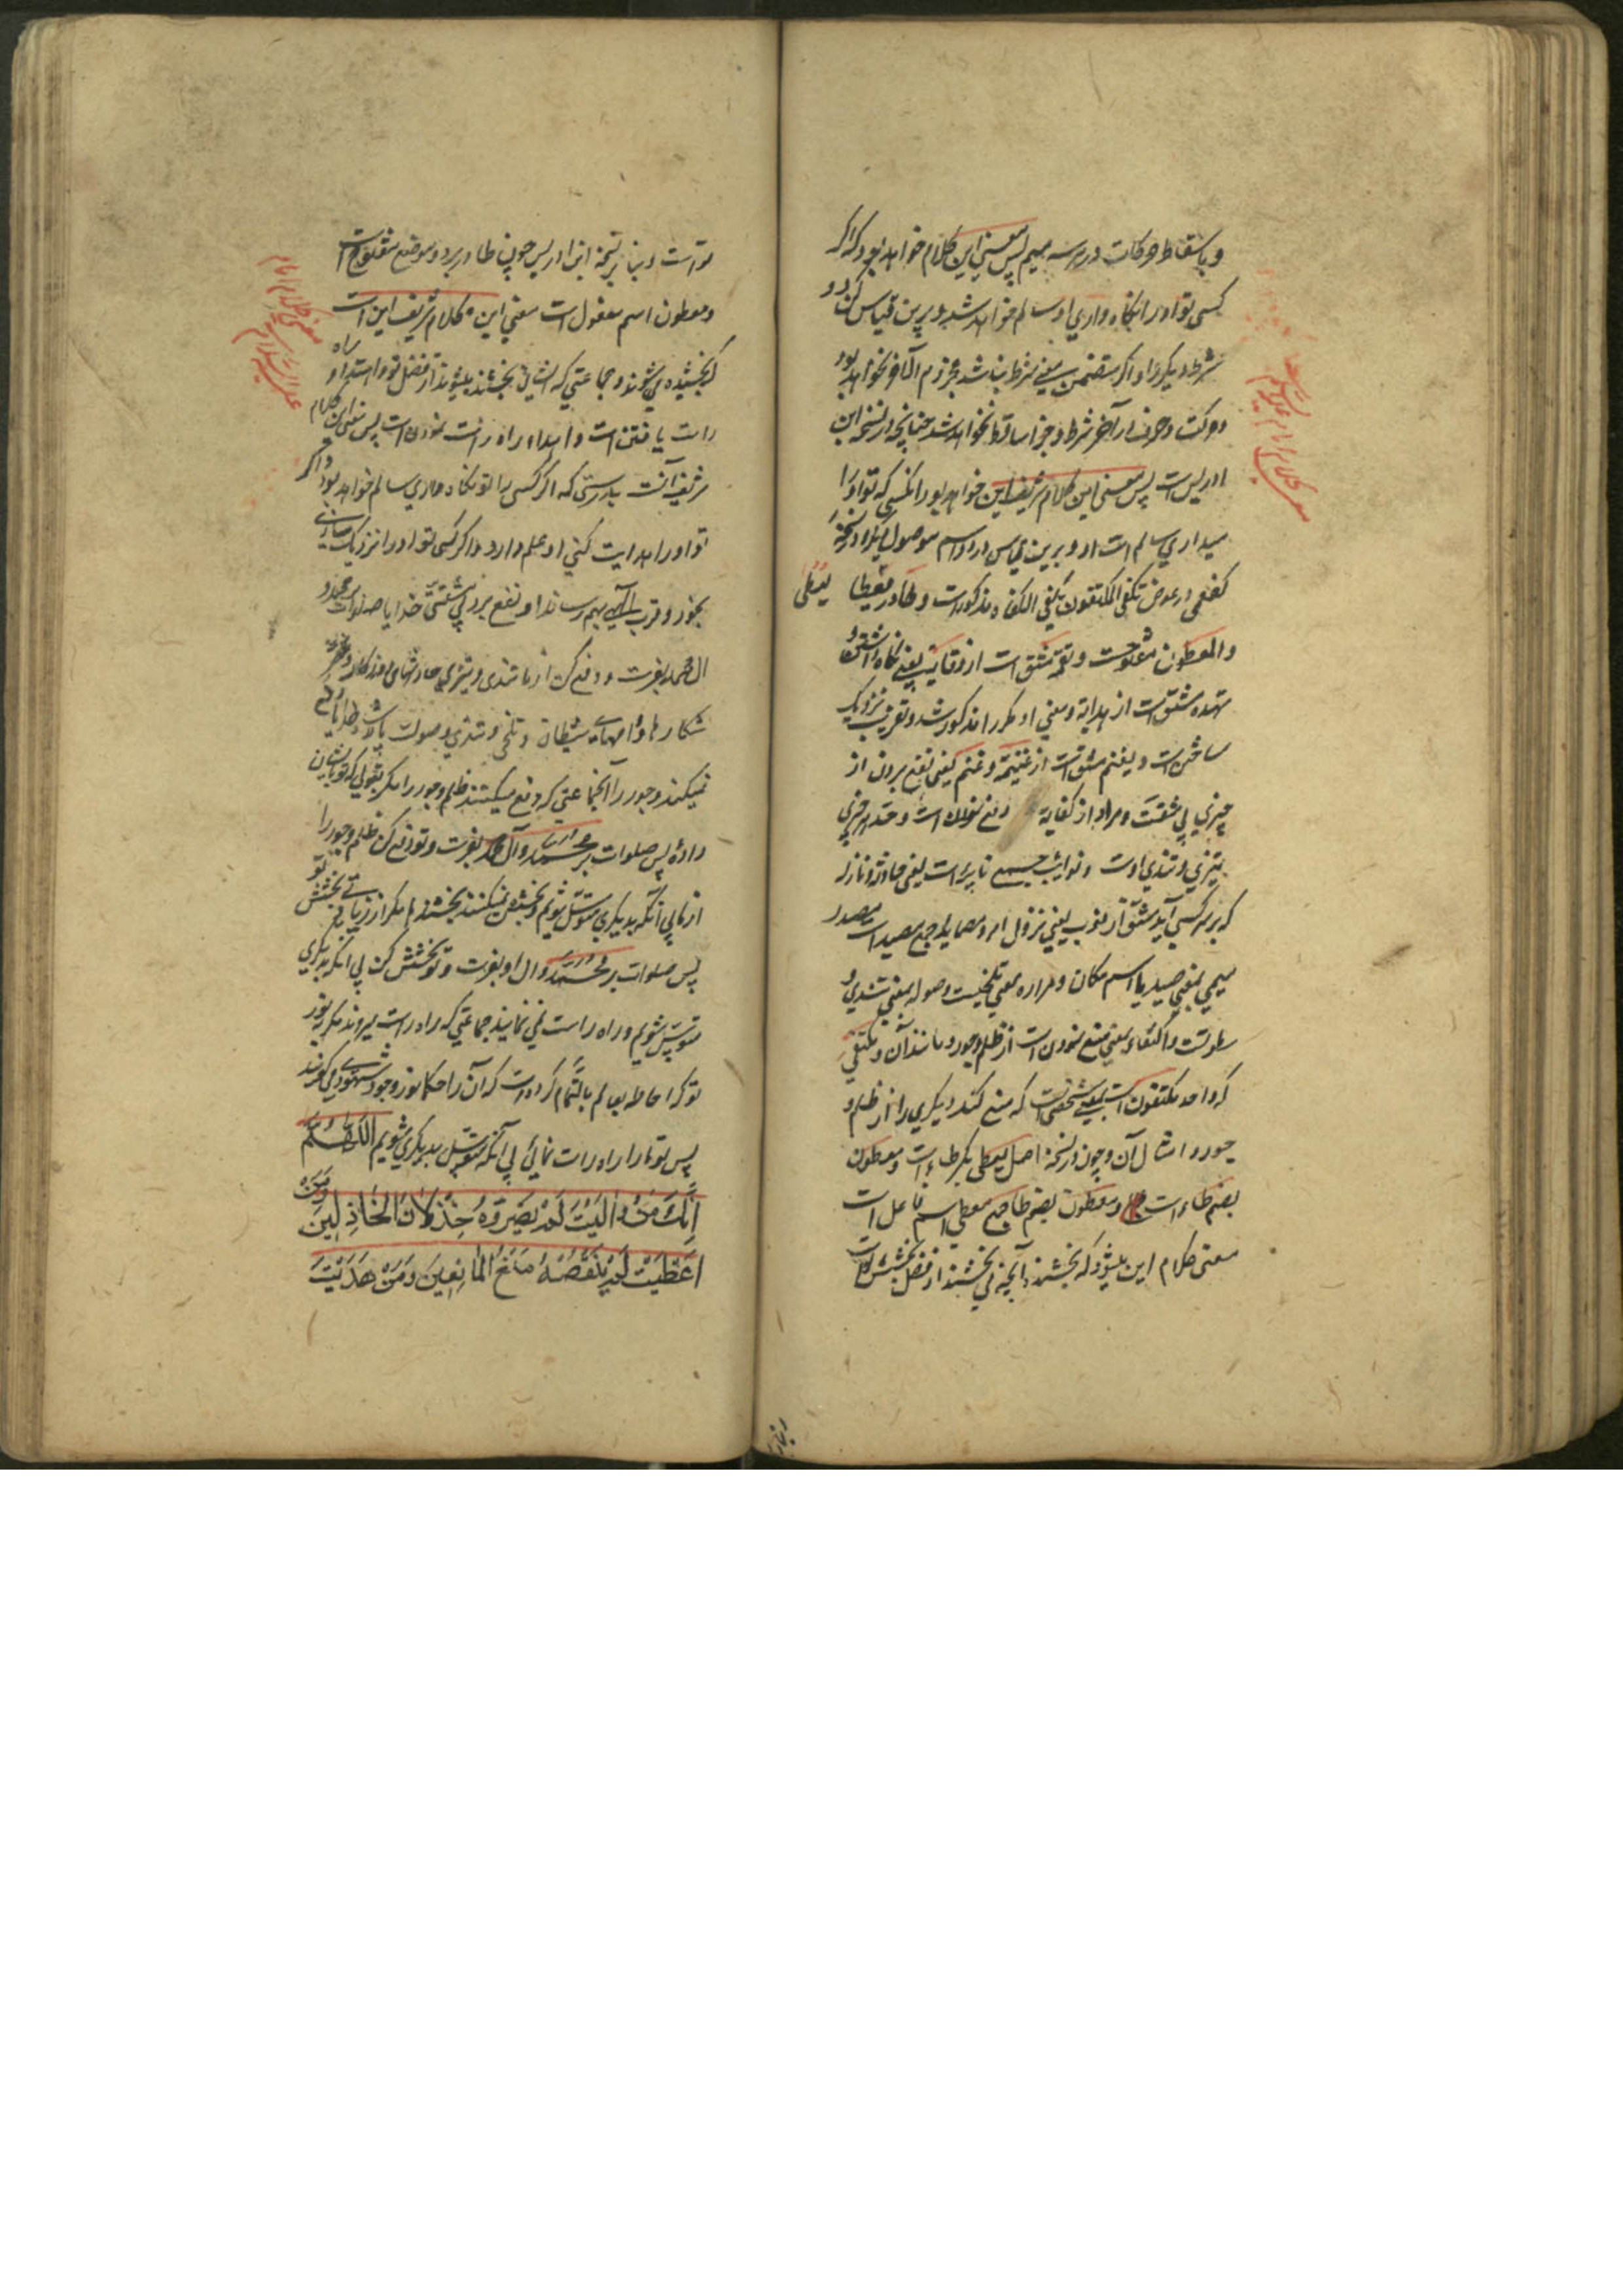 و باسقاط حرکات در هر سه میم پس معنی این کلام خواهد بود که اگر
کسی تو او را نگاه داری او سالم خواهد شد و برین قیاس کن دو
شرط دیگر را و اگر متضمن معنی شرط نباشد مجزوم الآخر نخواهد بود
و حرکت و حرف از آخر شرط و جزا ساقط نخواهد شد چنانچه در نسخه ابن
ادریس است پس معنی این کلام شریف این خواهد بود آنکسی که تو او را
میداری سالم است او و برین قیاس در او اسم موصول دیگر و در نسخه
کفعمی در عوض تکفی المکتفون یکفی الکفاه مذکور است و طا در معنی یعطی
والمعطون مفتوحست و تق مشتق است از وقایت یعنی نگاه داشتن و
تهده مشتق است از هدایة و معنی او مکرر مذکور شد و تقریب نزدیک
ساختن است و یغنم مشتق است از غنیمة و غنم یعنی نفع بردن از
چیزی بی مشقت و مراد از کفایه دفع نمودن است و حد هر چیزی
تیزی و تندی اوست و نوائب جمع نایبه است یعنی حادثه و نازله
که بر هر کسی آید مشتق از نوب یعنی نزول امر و مصاید جمع مصید است مصدر
میمی بمعنی صید یا اسم مکان و مراره بمعنی تلخیست و صوله بمعنی تندی و
سطوتست و اکتفاء بمعنی منع نمودن است از ظلم و جور و مانند آن و مکتفی
که واحد مکتفون است بمعنی شخصی است که منع کند دیگری را از ظلم و
جور و امثال آن و چون در نسخه اصل یعطی بکسر طاء است و معطون
بضم طاء است و معطون بضم طا جمع معطی اسم فاعل است
معنی کلام این میشود که بخشند آنچه می بخشند از فضل بخشش
تو است و بنا بر نسخه ابن ادریس چون طا در هر دو موضع مفتوح است
و معطون اسم مفعول است معنی این کلام شریف این است
که بخشیده می شوند و جماعتی که ایشان بخشنده میشوند از فضل تو و اهتداء راه
راست یافتن است و اهداء راه راست نمودن است پس معنی این کلام
شریف آنست بدرستی که اگر کسی را تو نگاه داری سالم خواهد بود و اگر
تو او را هدایت کنی او علم دارد و اگر کسی تو او را نزدیک سازی
بخود و قرب الهی بهم رساند او نفع برد بی مشقتی خدایا صلوات بر محمد و
ال محمد بفرست و دفع کن از ما تندی و تیزی حادثهای روزگار و
شکارها و دامهای شیطان و تلخی و تندی و صولت پادشاه
نمیکنند و جور را آنجماعتی که دفع میکنند ظلم و جور را مگر بقوتی که تو بایشان
داده پس صلوات بر محمد و آل محمد بفرست و تو دفع کن ظلم و جور را
از ما بی آنکه بدیگری متوسل شویم و بخشش نمیکنند بخشنده ها مگر از زیادتی بخشش تو
پس صلوات بر محمد و ال او بفرست و تو بخشش کن بی آنکه بدیگری
متوسل شویم و راه راست نمی نمایند جماعتی که راه راست میروند مگر بنور
تو که احاطه بعالم بالتمام کرده است که آن را حکما نور وجود می گویند
پس تو ما را راه راست نمائی بی آنکه متوسل بدیگری شویم اَللّهُمَّ
اِنَّكَ مَنْ وَالَيْتَ لَمْ يَضُرَّهُ خِذْلَانُ الْخَاذِلِينَ وَمَنْ
اَعْطَيْتَ لَمْ يَنْقُصْهُ مَنْعُ الْمَانِعِينَ وَمَنْ هَدَيْتَ